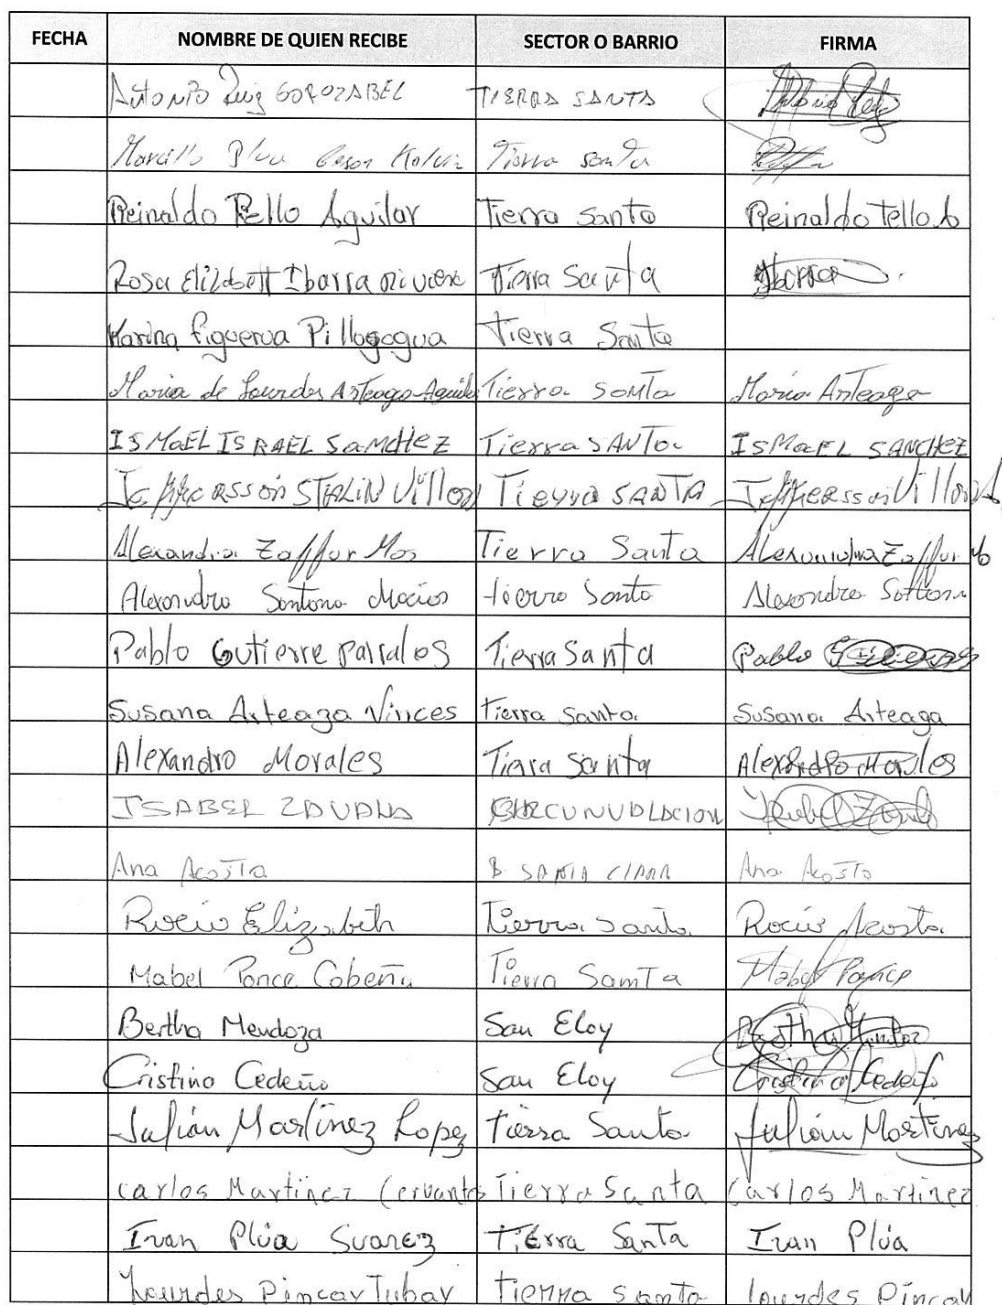 FECHA NOMBRE DE QUIEN RECIBE SECTOR O BARRIO FIRMA
Antonio Ruiz GOROZABEL TIERRA SANTA
Tierra santa
Reinaldo Tello Aguilar Tierra Santa Reinaldo Tello A
Rosa Elizabett Ibarra Tierra Santa Ibarra
Karina Figueroa Pillogogua Tierra Santa
Maria de Lourdes Arteaga Aguila Tierra Santa Maria Arteaga
ISMaEL ISRAEL SaMcHeZ TierraSANTa ISMaEL SANCHEZ
Jeffferssón STALIN Villon Tierra SANTA Jefffersson Villon
Alexandra Zaffur Mos Tierra Santa Alexandra Zaffur
Alexandra Santana Macias tierra Santa Alexandra
Pablo Gutierre Parrales Tierra Santa Pablo
Susana Arteaga Vinces Tierra Santa Susana Arteaga
Alexandro Morales Tierra Santa Alexandro Morales
ISABEL ZAVALA CIRCUNVALACION Isabel Zavala
Ana Acosta B SANTA CLARA Ana Acosta
Rocio Elizabeth Tierra Santa Rocio Acosta
Mabel Ponce Cobeña Tierra Santa Mabel Ponce
Bertha Mendoza San Eloy Bertha
Cristina Cedeño San Eloy Cristina Cedeño
Julián Martínez Lopez Tierra Santa Julian Martinez
Carlos Martinez Cervantes Tierra Santa Carlos Martinez
Ivan Plúa Suarez Tierra Santa Ivan Plúa
Lourdes Pincay Tubay Tierra Santa Lourdes Pincay